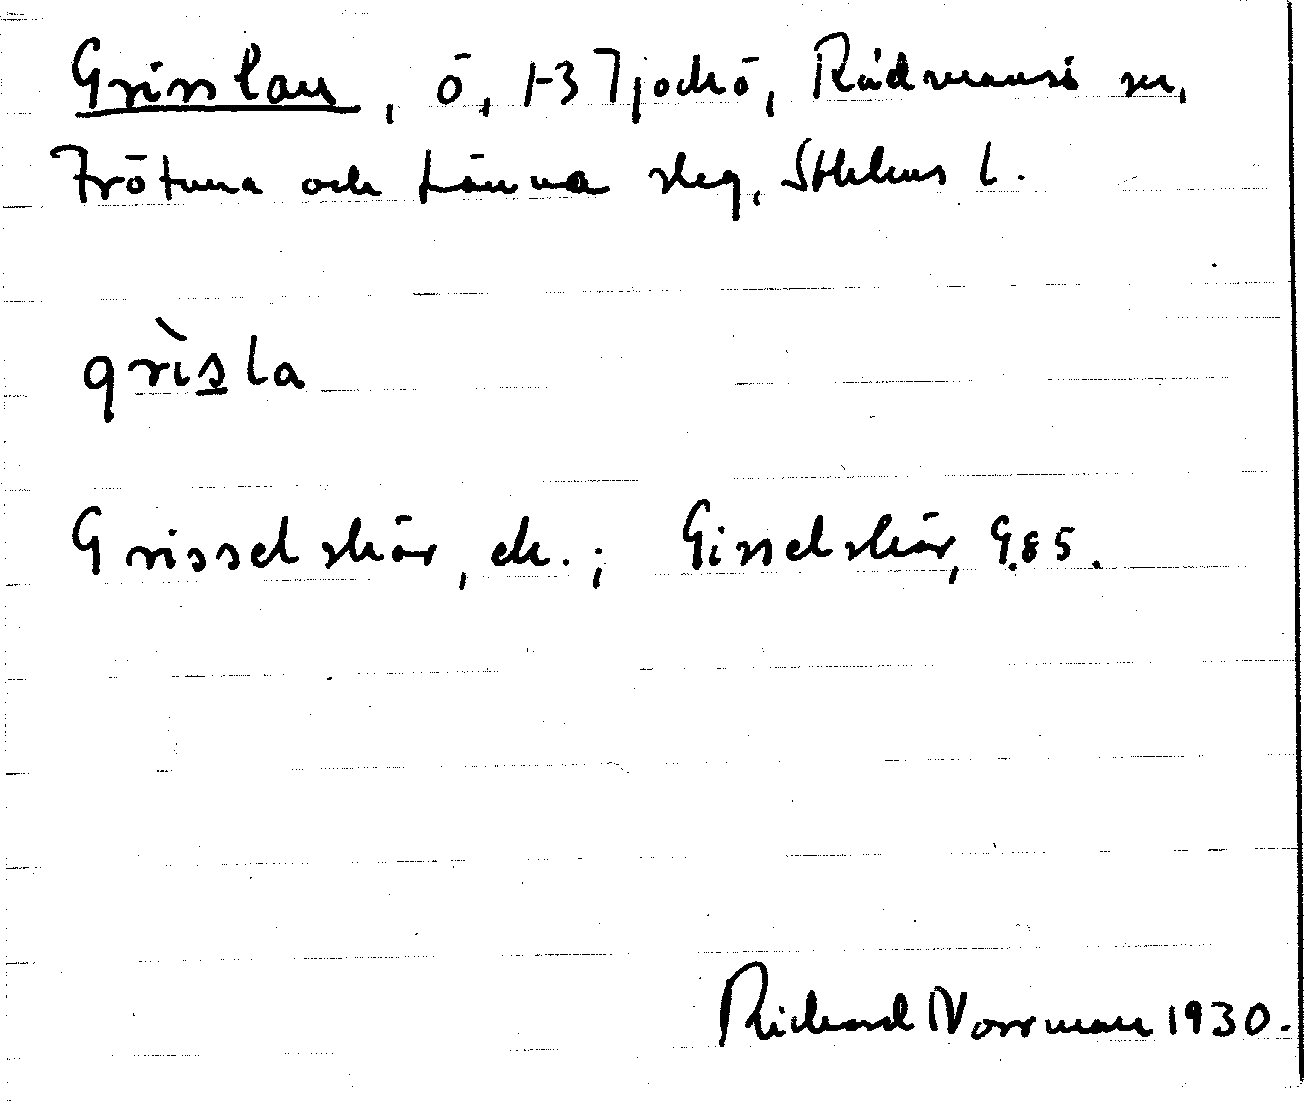 Grisslan, ö, 1-3 Tjockö, Rådmansö sn,
Frötuna och Länna skeg, Sthlms l.
grìsla
Grisselskär, ek.; Gisselskär, G.85.
Richard Norrman 1930.